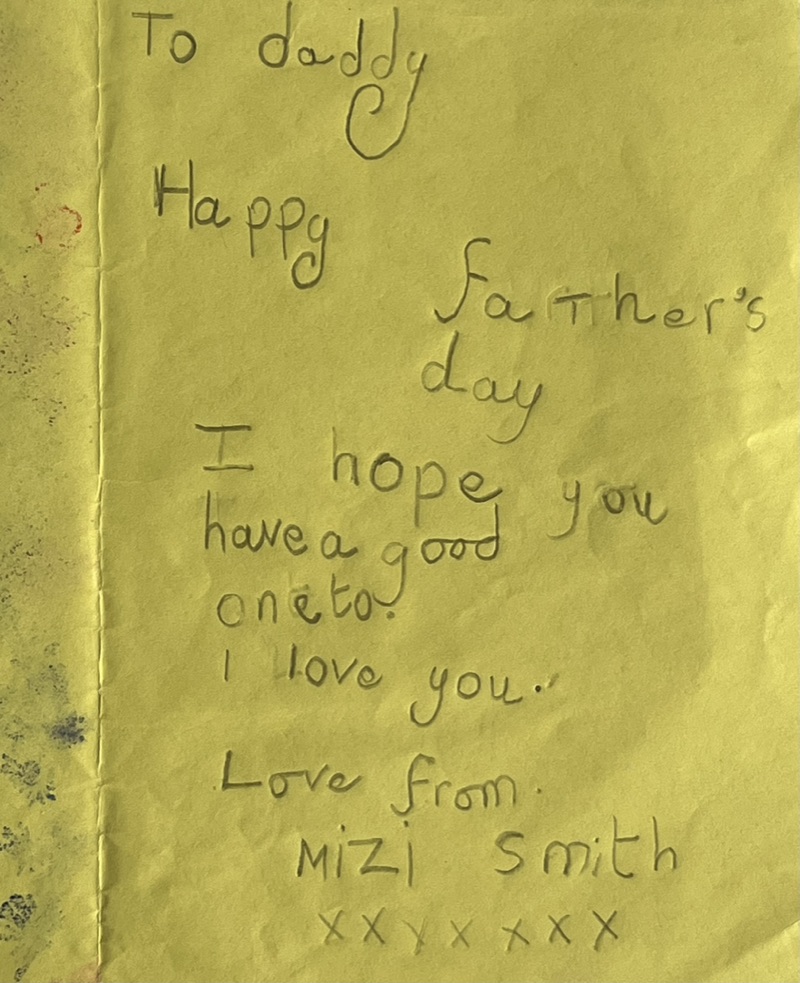 To daddy
Happy
father's
day
I hope you
have a good
one to.
I love you.
Love from.
Mizi Smith
xxyxxxx